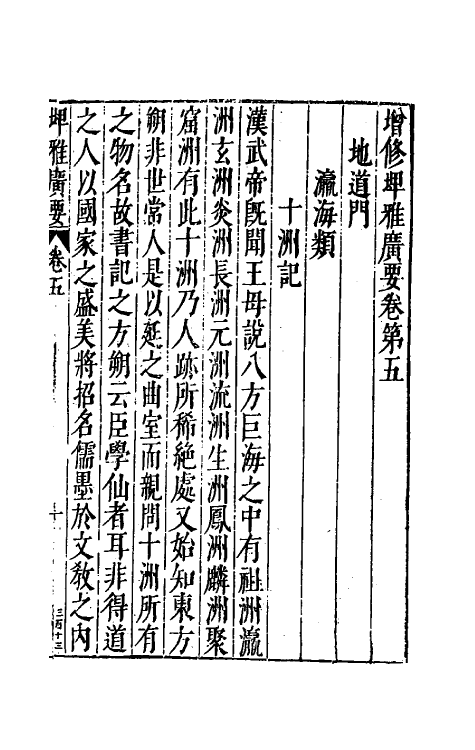 增修埤雅廣要卷第五
地道門
瀛海類
十洲記
漢武帝旣聞王母說八方巨海之中有祖洲瀛
洲玄洲炎洲長洲元洲流洲生洲鳳洲麟洲聚
窟洲有此十洲乃人跡所稀絶處又始知東方
朔非世常人是以延之曲室而親問十洲所有
之物名故書記之方朔云臣學仙者耳非得道
之人以國家之盛美將招名儒墨於文敎之內
埤雅廣要
卷五